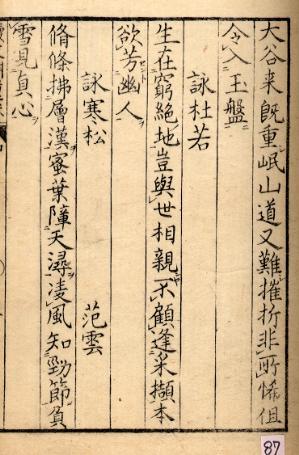 大谷来既重岷山道又難摧折非所恡但
令入玉盤
詠杜若
生在窮絶地豈與世相親不顧逢采擷本
欲芳幽人
詠寒松　范雲
脩條拂層漢蜜葉障天潯凌風知勁節負
雪見貞心
87